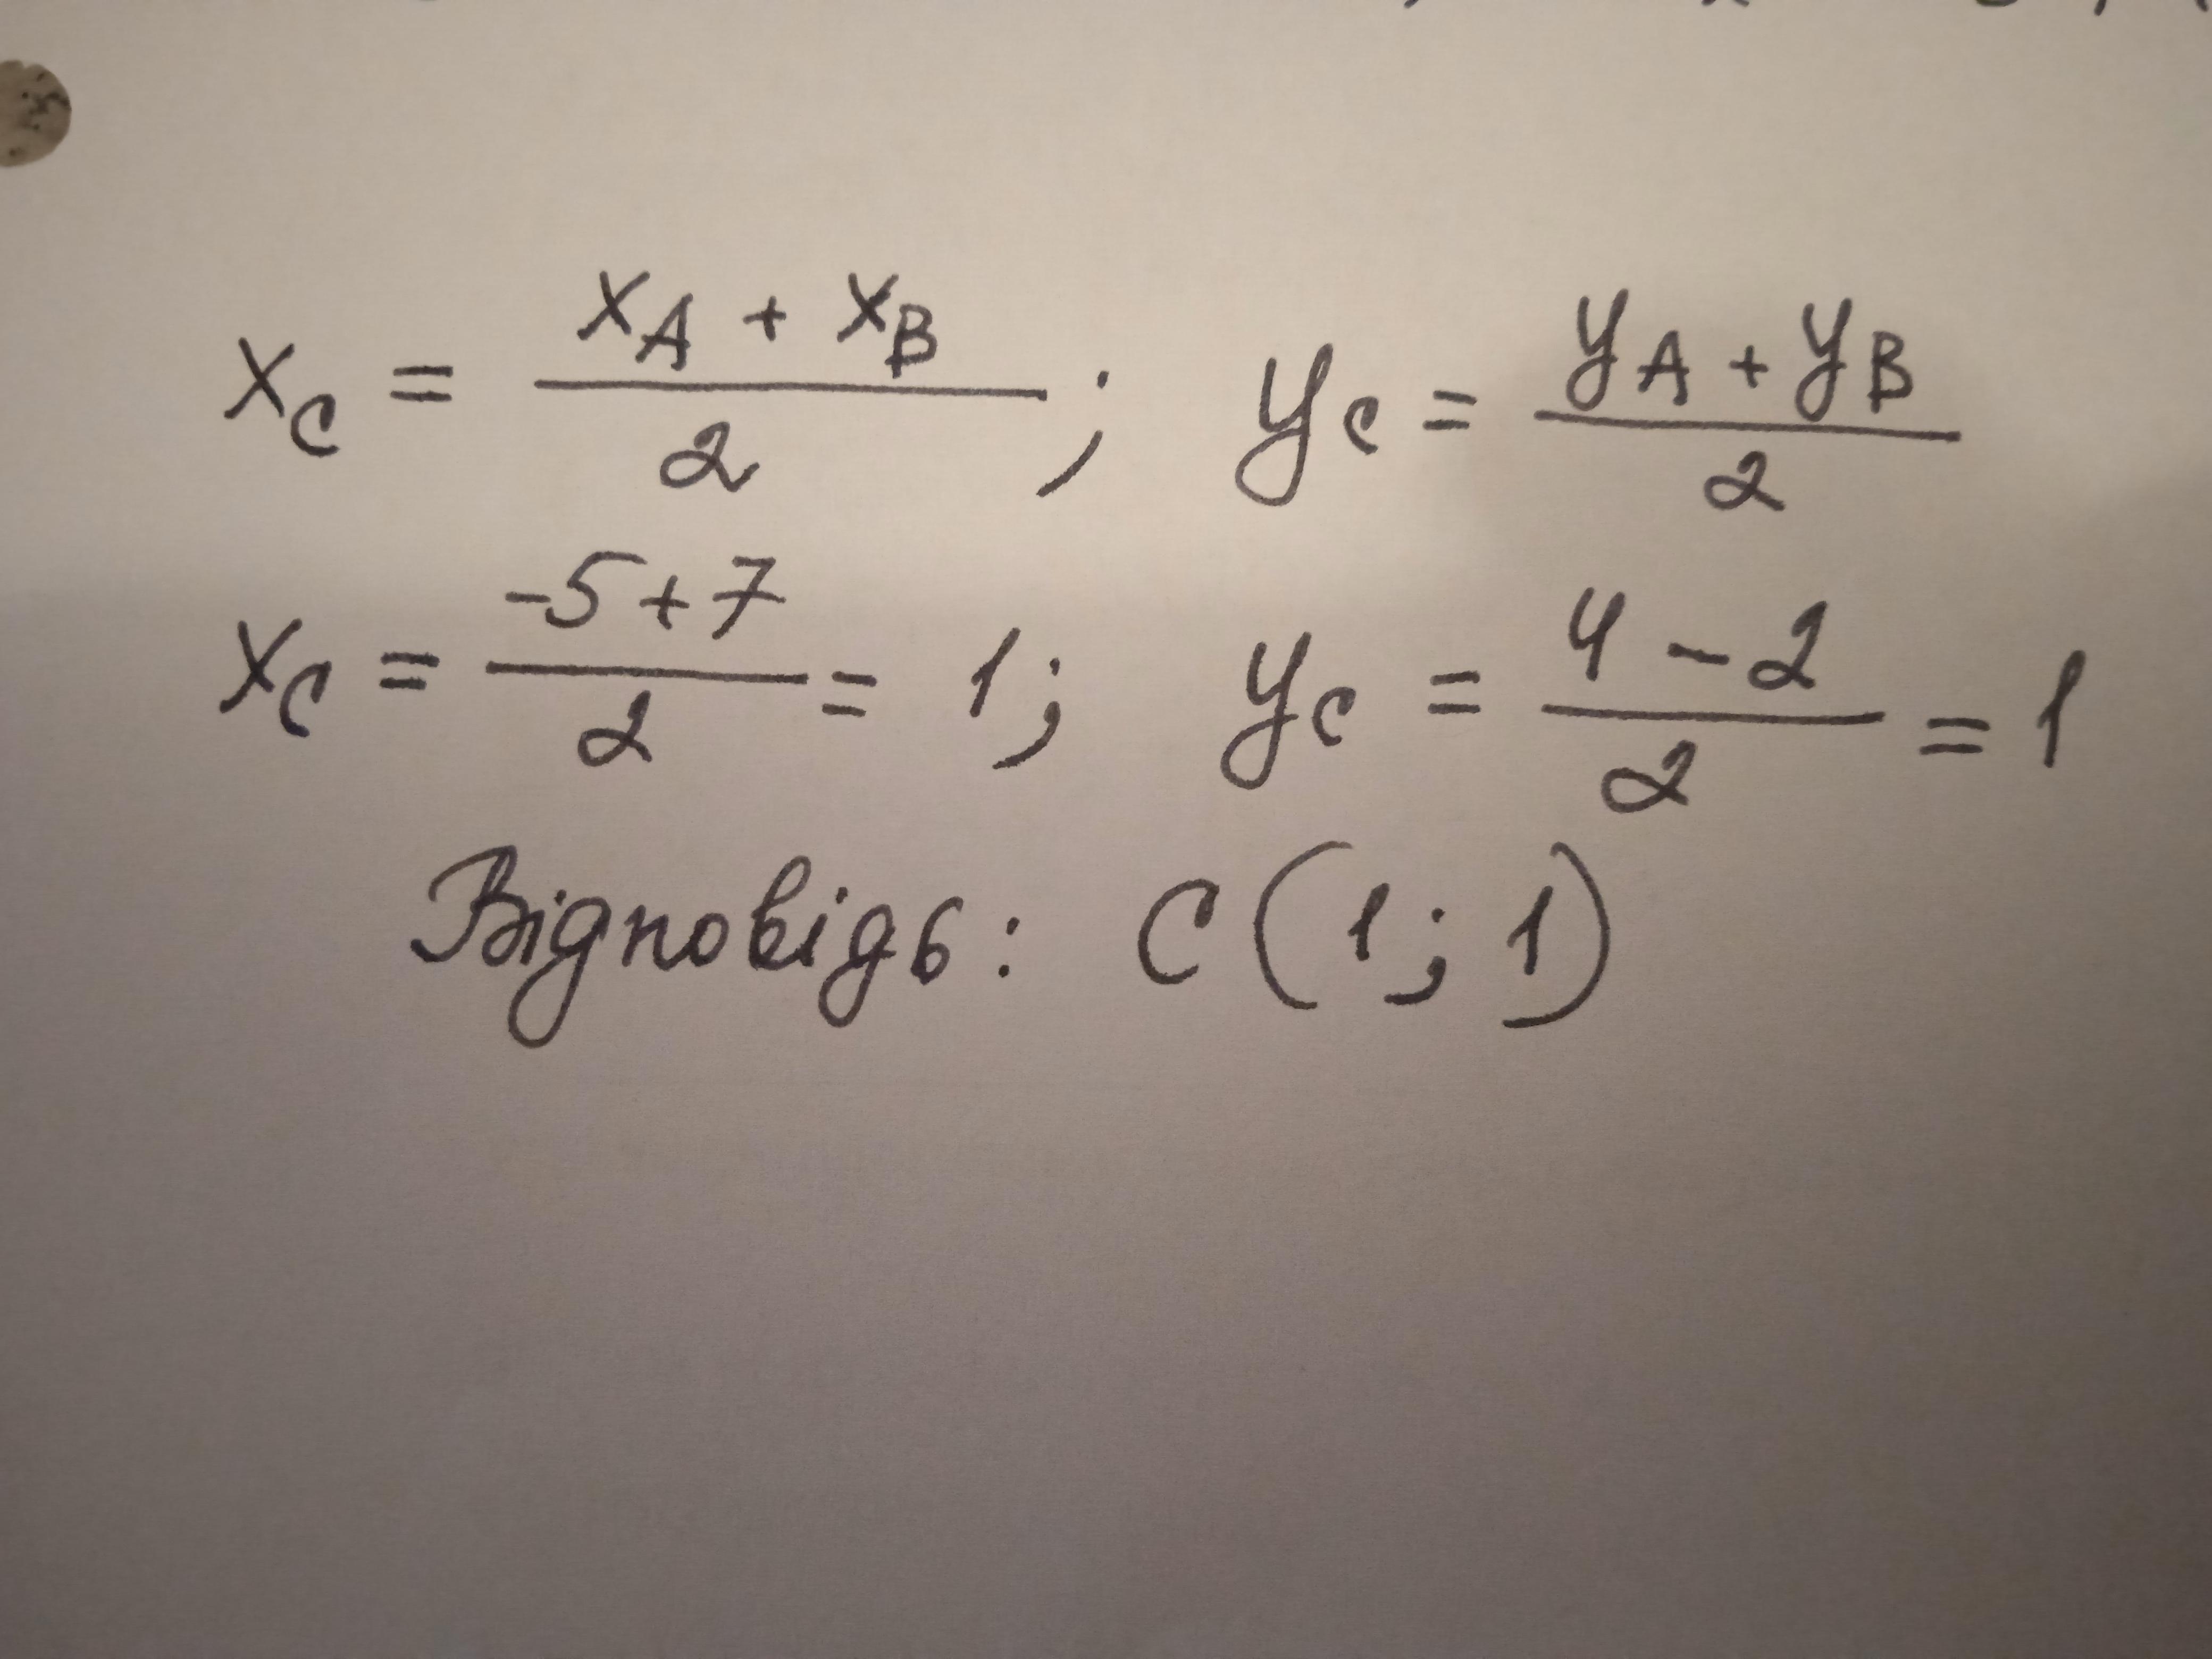 x_C = \frac{x_A + x_B}{2} ; y_C = \frac{y_A + y_B}{2}
x_C = \frac{-5+7}{2} = 1; y_C = \frac{4-2}{2} = 1
Відповідь: C(1; 1)